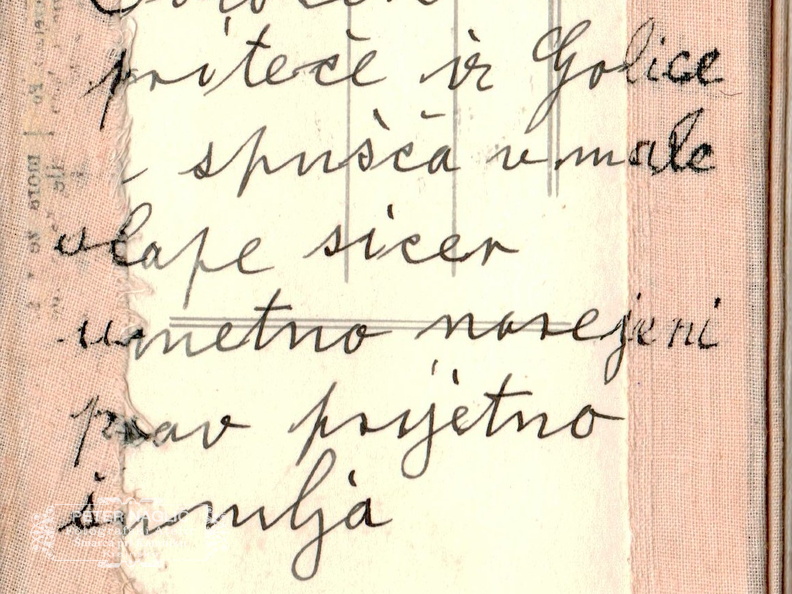 priteče iz Golice
spušča v male
slape sicer
umetno narejeni
prav prijetno
šumlja